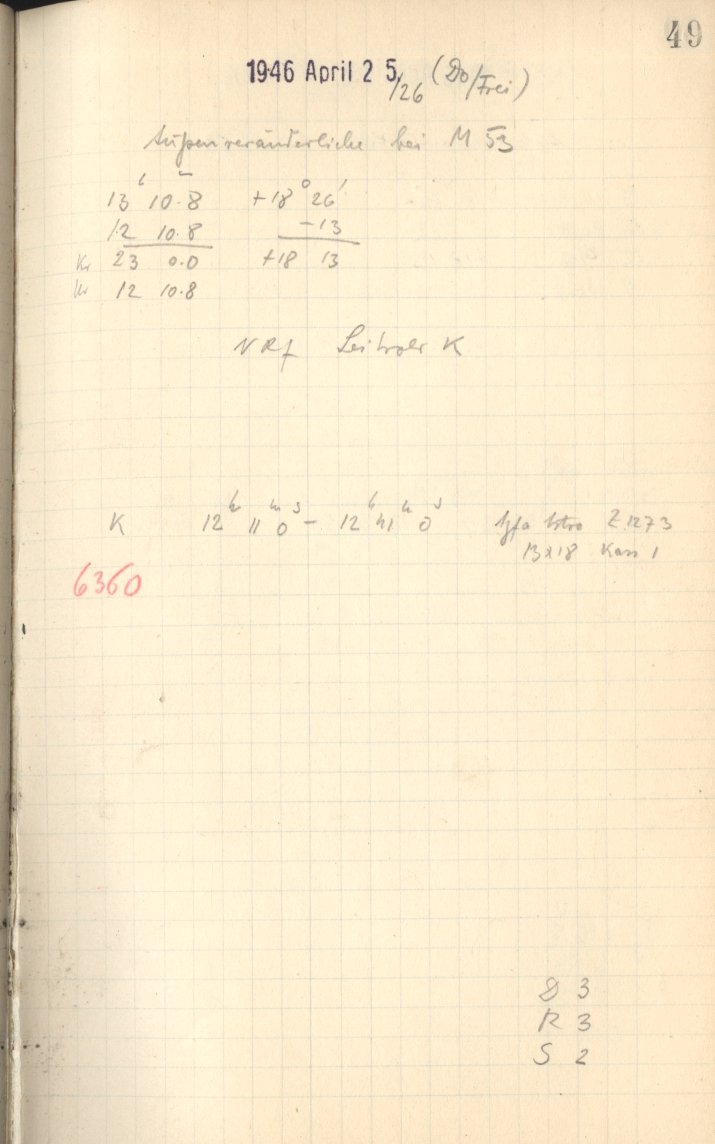 49
1946 April 25/26 (Do/Frei)
Außenveränderliche bei M 53
13h 10m.8 +18° 26'
12 10.8 -13
Kr 23 0.0 +18 13
Kr 12 10.8
NRf K
K 12h 11m 0s - 12h 41m 0s Agfa Astro Z 1273
13x18 Kass 1
6360
D 3
R 3
S 2